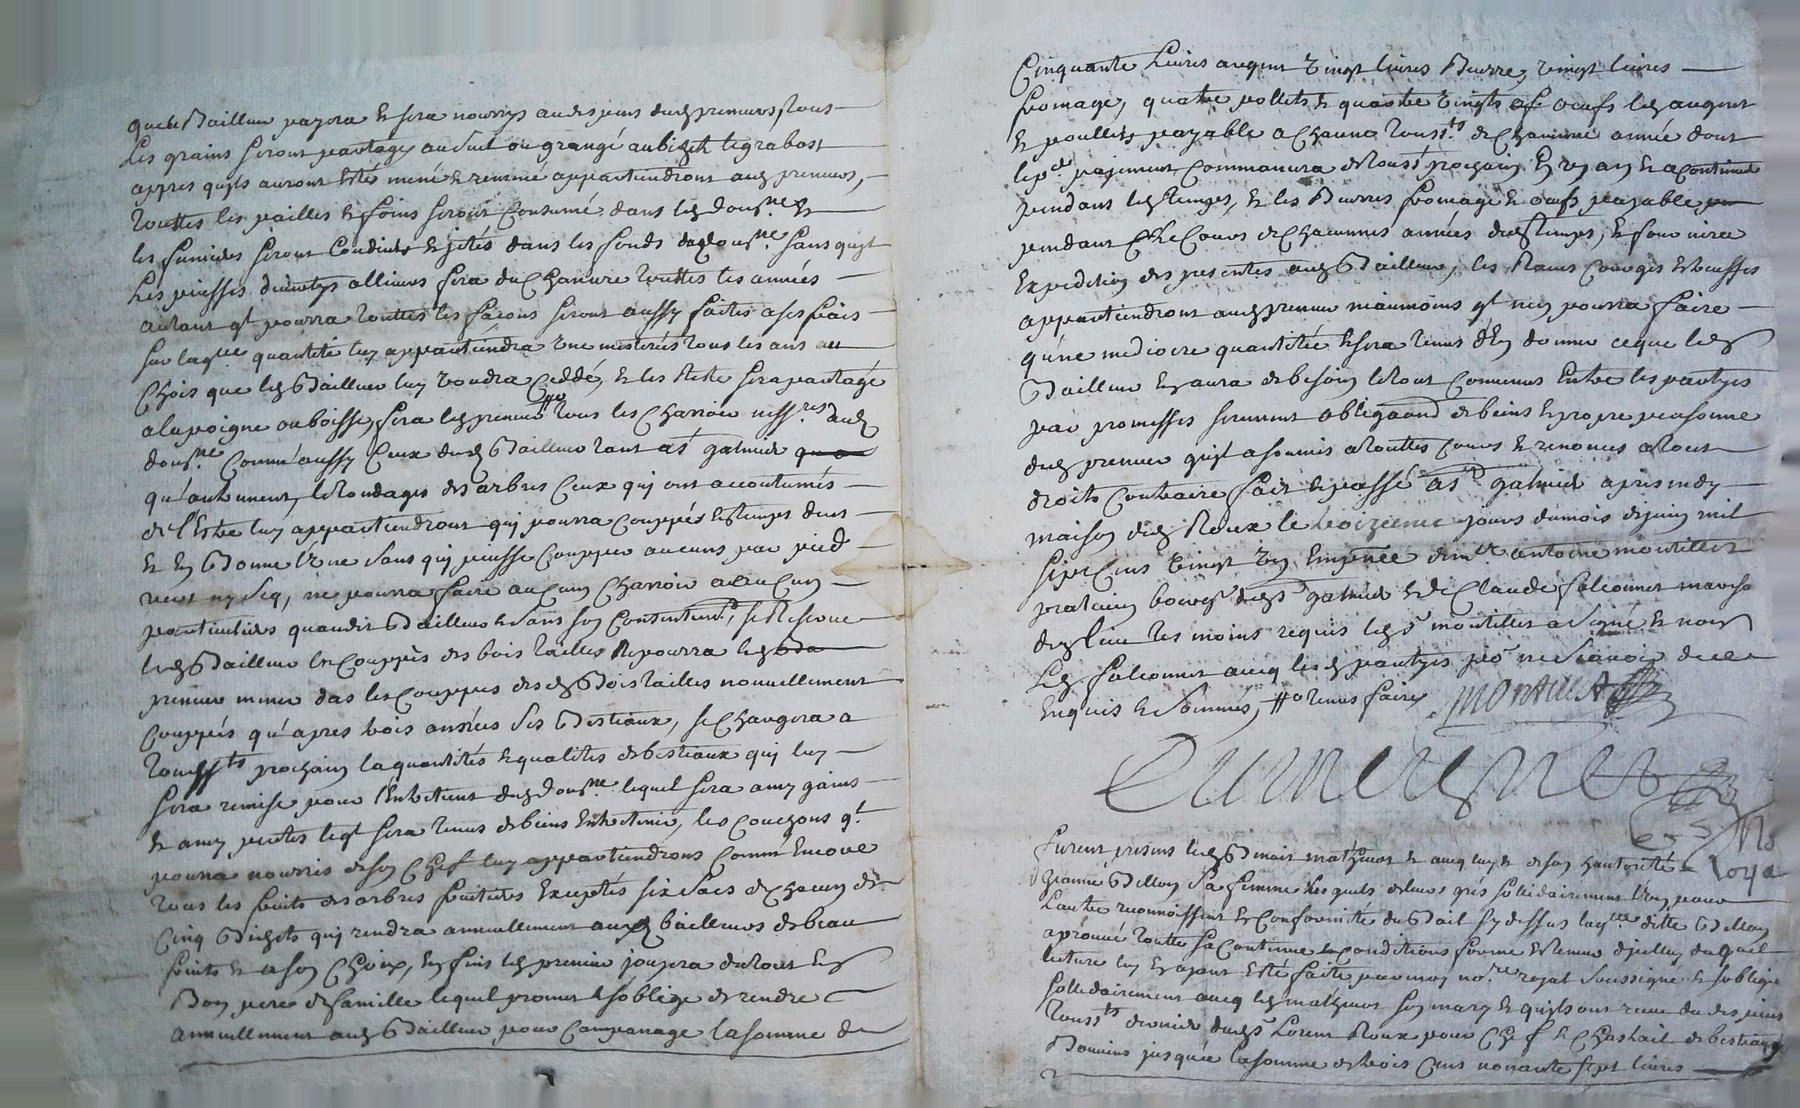 que le Bailleur payera & sera nourrys aux despens dud preneur, tous
Les grains seront partagés au suel ou grangé au bichet le grabost
appres quils auront esté mené & remené appartiendront aud preneur,
Touttes les pailles & foins seront Consumé dans led dom.ne &
les fumiers seront Conduits & jetés dans les fonds dud dom.ne sans quil
Les puisse divertyr allieurs fera du Chanvre touttes les années
autant qt pourra touttes les façons seront aussy faites a ses frais
sur laqlle quantité luy appartiendra une mesterés tous les ans au
Chois que led Bailleur luy voudra Ceddé, & les reste sera partagé
a la poigne ou boisse, fera led preneur tous les Charrois ness.res aud
dom.ne Comme aussy Ceux dud Bailleur tant a st galmier
qu'autrement, le tondages des arbres Ceux qui ont accoutumés
de l'Estre luy appartiendront qui pourra Couppés en temps deus
& en Bonne lune sans qui puisse Coupper aucuns par pied
vert ny secq, ne pourra faire aucun Charrois a aucun
particuliers quaudit Bailleur & sans son Consentemt, se Reserve
led Bailleur les Couppés des bois tailles ne pourra led
preneur mener das les Couppes desd Bois tailles nouvellement
Couppés qu'apres trois années ses Bestiaux, se Chargera a
Toussts prochain la quantités & qualités de bestiaux qui luy
sera remise pour l'Entretient dud dom.ne lequel sera a my gains
& a my pertes leqt sera tenus de biens Entretenir, les Couchons qt
pourra nourris de son Chef luy appartiendrons Comme Encore
Tous les fruits des arbres fruitiers Exceptés six sacs de chacun de
Cinq Bichets qui rendra annuellement aud bailleurs de beau
fruits & a son Choix, En fins led preneur jouyra du tout En
Bon pere de famille lequel promet & soblige de rendre
annuellement aud Bailleur pour Campanage la somme de
Cinquante Livres argent vingt livres Burre, vingt livres
fromage, quatre pollets & quatre vingts oeufs led argent
& poullets payable a Chacune Touss.ts de Chacune année dont
le p.er payement Commancera de Touss.t prochain En un an & a Continué
pendant led temps, & les Burres fromage & oeufs payable
pendant Le Cours de Chacunnes années dud temps, & fournira
Expedition des presentes aud Bailleur, les Raves Courges & treuffes
appartiendront aud preneur neaumoins qt nen pourra faire
qune mediocre quantitée & sera tenus d'En donner ce que led
Bailleur En aura de besoin le tout Convenus Entre les partyes
par promesses serment obligaond de biens & propre personne
dud preneur quil a soumis a touttes Cours & renonces a tout
droits Contraire fait & passé a st galmier apres midy
maison dud Roux le troizieme jours du mois de juin mil
sept Cens vingt En presence de mtre antoine montillet
praticien bourg.s dud st galmier & de Claude falconnet marchd
dud lieu tesmoins requis led sr montillet a signé & non
Led falconnet aveq lesd partyes po.r ne sçavoir de ce
Enquis & sommés, # tenus faire montillet
Furent presens led Benoit mathevot & aveq luy & de son hauthorité
Jeanne Billon sa femme Lesquels de leurs grés sollidairement lun pour
Lautre reconnoissent En Conformité du Bail sy dessus laq.lle ditte Billon
aprouvé toutte sa Contenue & Conditions forme & teneur dicelluy duquel
lecture luy En ayant Esté faite par moy no.re royal soussigné & soblige
sollidairement aveq led mathevot son mary & quils ont receu du despuis
Touss.ts dernier dud sr Lorent Roux pour Chef & Chastail de bestiaux
Bouvins jusques a la somme de trois Cens nonante sept livres